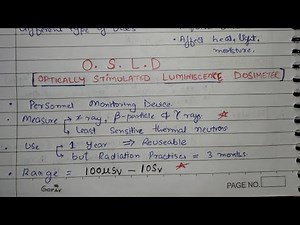 different type of
• Affect heat, light,
moisture.
O. S. L. D
OPTICALLY STIMULATED LUMINISCENCE DOSIMETER
• Personnel Monitoring Device
• Measure → x ray, β-particle & γ rays
→ Least Sensitive thermal neutrons
• Use → 1 Year ⇒ Reuseable
→ but Radiation Practises = 3 months
• Range = 100μSv – 10Sv
PAGE NO.